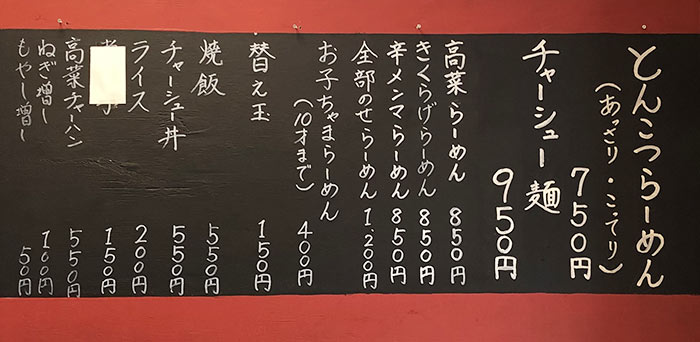 とんこつらーめん
(あっさり・こってり)
750円
チャーシュー麺
950円
高菜らーめん 850円
きくらげらーめん 850円
辛メンマらーめん 850円
全部のせらーめん 1,200円
お子ちゃまらーめん
(10才まで)
400円
替え玉 150円
焼飯 550円
チャーシュー丼 550円
ライス 200円
150円
高菜チャーハン 550円
ねぎ増し 100円
もやし増し 50円